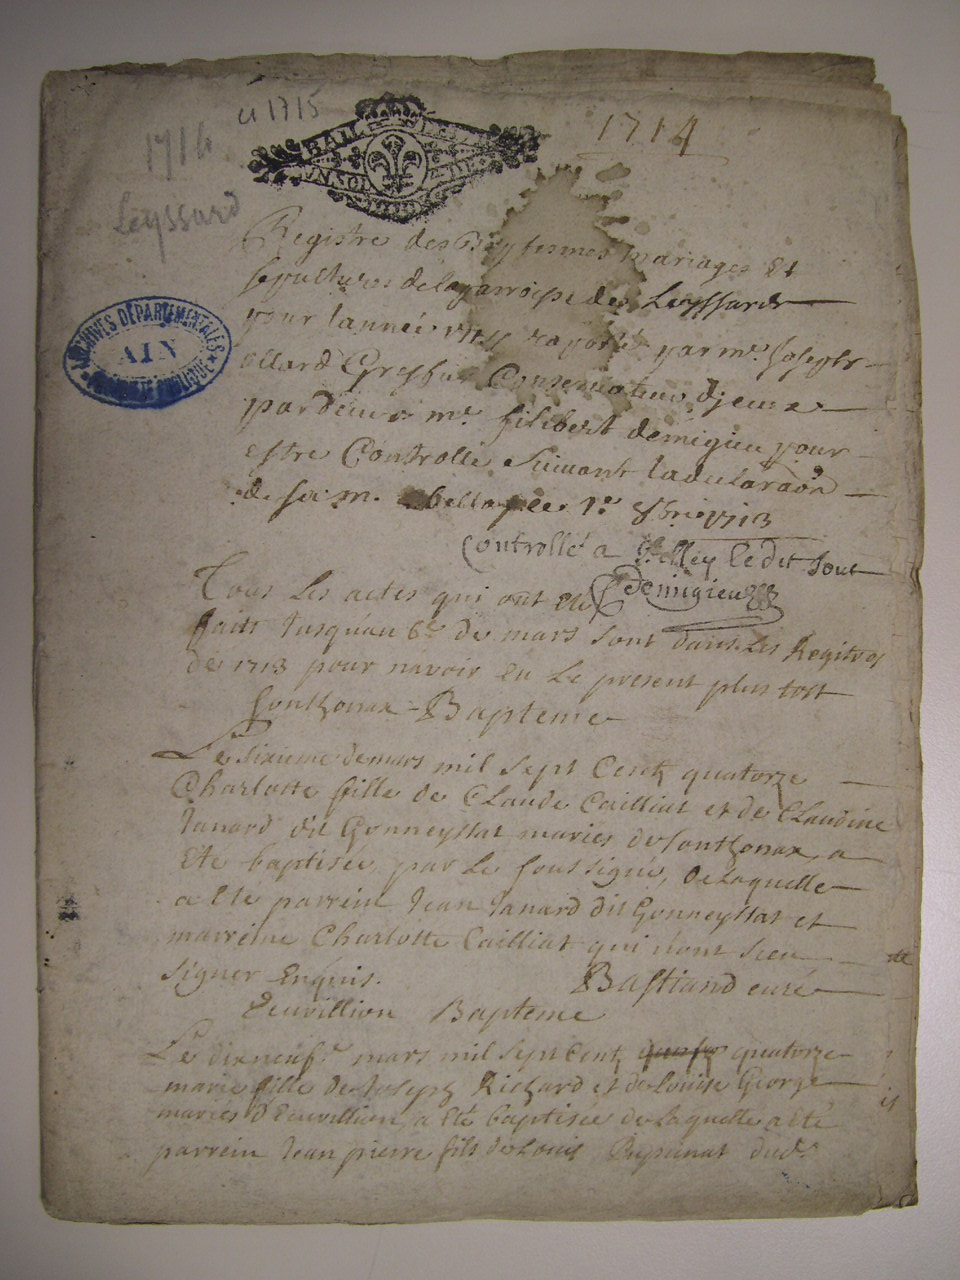 1714 et 1715
Leyssard
1714
ARCHIVES DÉPARTEMENTALES
AIN
Registre des Baptesmes mariages Et
sepultures de la parroisse de Leyssard
pour lannée 1714 raporté par mr. Joseph
ollard Greffier Conservateur
pardevant mr. filibert demigieu pour
estre Controllé suivant la declaraon
de sa m. 1er 8bre 1713
Controllé a le dit Jour
Demigieu
Tous les actes qui ont eté
faits Jusquau 6e de mars sont dans les Registres
de 1713 pour navoir eu le present plus tost
sonthonax - Bapteme
Le sixieme de mars mil sept Centz quatorze
Charlotte fille de Claude Cailliat et de CLaudine
Janard dit Gonneystat maries de sonthonax, a
Eté baptisée par Le soussigné, de Laquelle
a été parrein Jean Janard dit Gonneystat et
marreine Charlotte Cailliat qui n'ont sceu
signer Enquis. Bastiand curé
Deuvillion Bapteme
Le dixneufe mars mil sept Centz quatorze
marie fille de Joseph Richard et de Louise George
mariés d'Euvillion, a eté baptisée de Laquelle a eté
parrein Jean pierre fils de Louis dud.